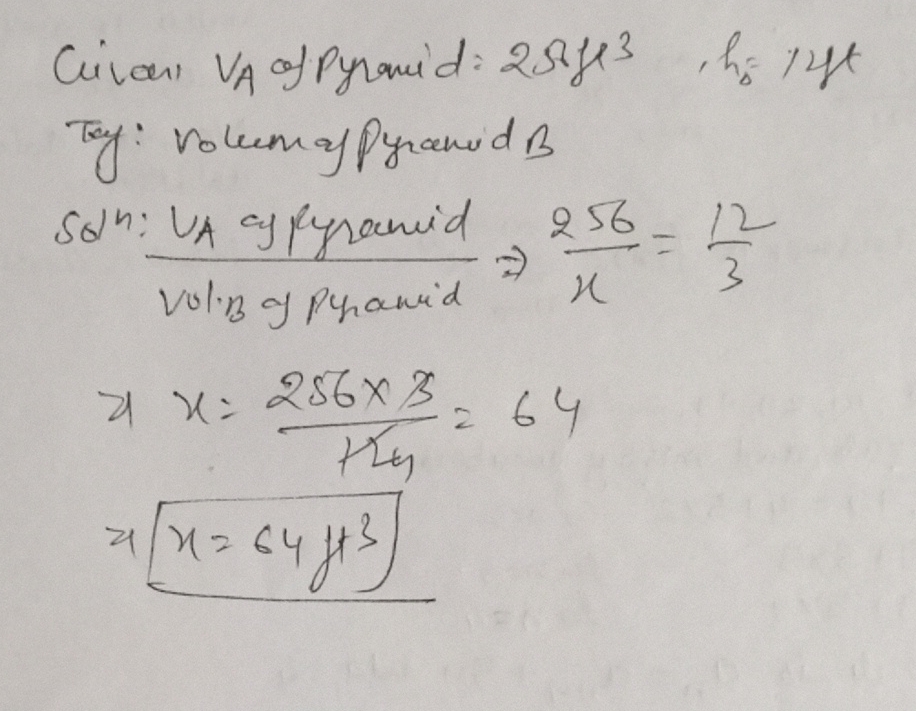 Given V_A of Pyramid: 256ft3, h: 12ft
Toy: Volum of Pyramid B
Soln: V_A of Pyramid / Vol.B of Pyramid ⇒ 256/x = 12/3
⇒ x = 256 x 3 / 12 4 = 64
⇒ x = 64 ft3